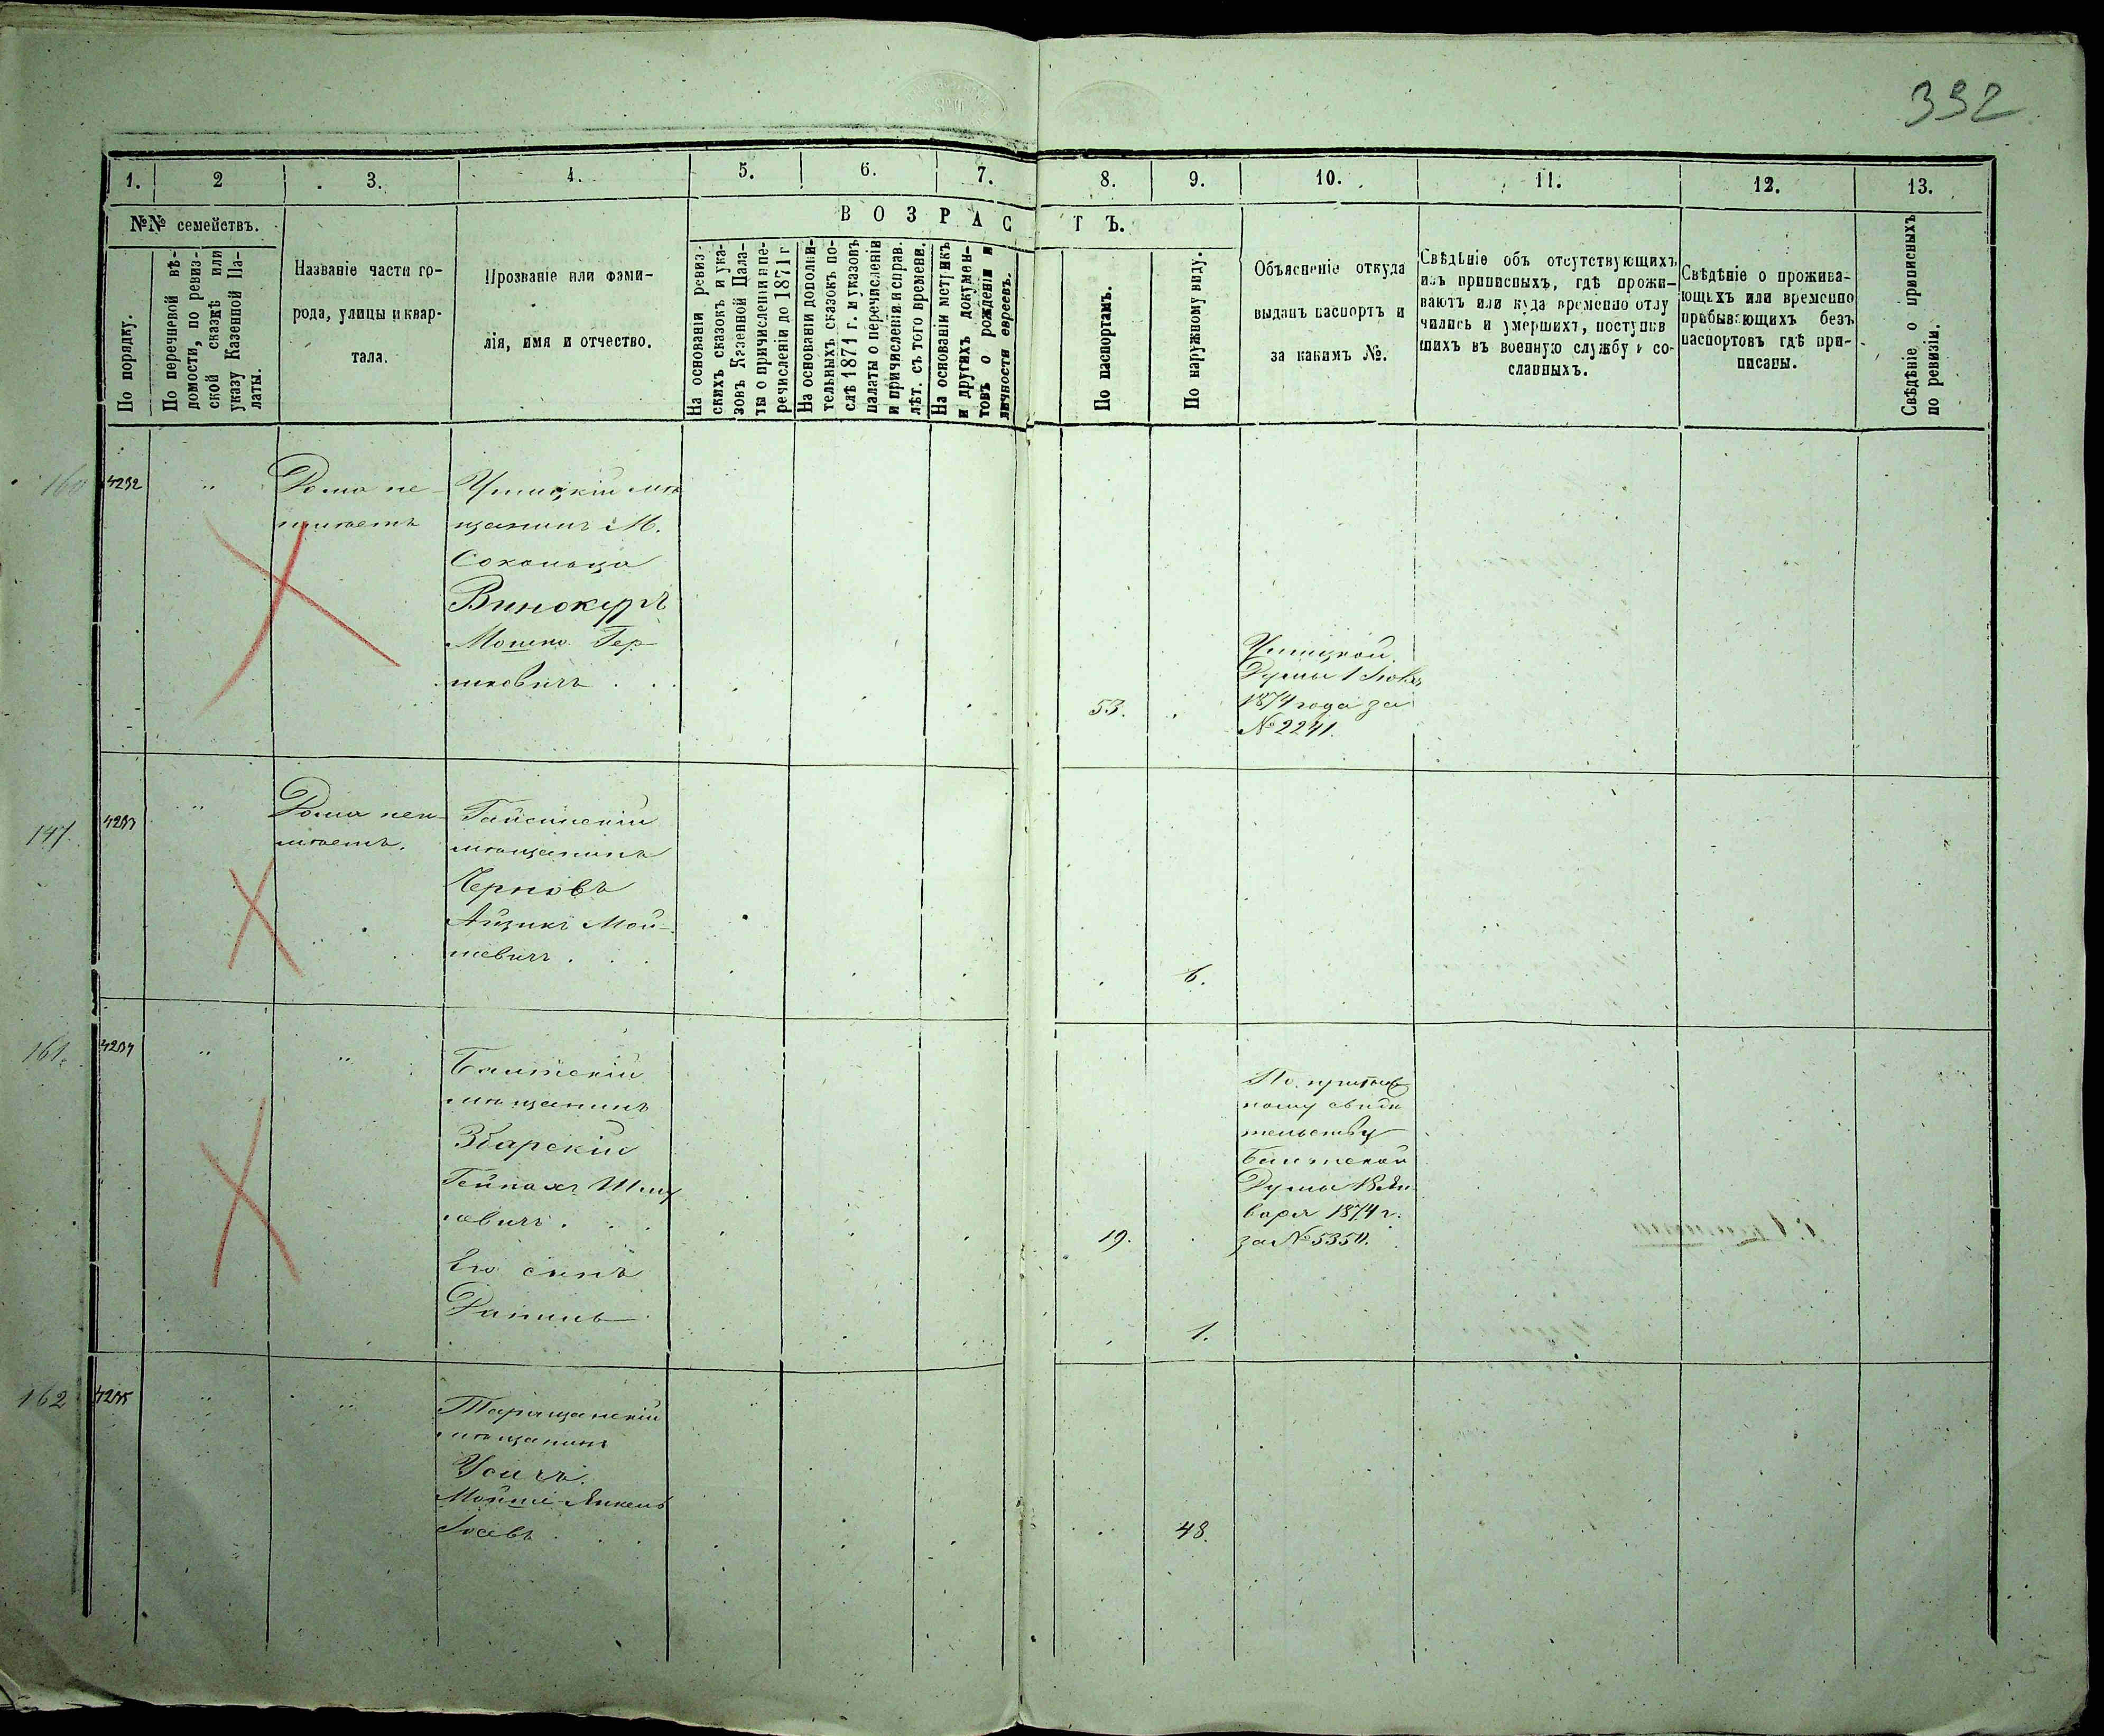 392
1. 2 3. 4. 5. 6. 7. 8. 9. 10. 11. 12. 13.
№№ семействъ.
По порядку.
По перечневой вѣ-
домости, по ревиз-
ской сказкѣ или
указу Казенной Па-
латы.
Названіе части го-
рода, улицы и квар-
тала.
Прозваніе или фами-
лія, имя и отчество.
ВОЗРАСТЪ.
На основаніи ревиз-
скихъ сказокъ и ука-
зовъ Казенной Пала-
ты о причисленіи и пе-
речисленіи до 1871 г
На основаніи дополни-
тельныхъ сказокъ по-
слѣ 1871 г. и указовъ
палаты о перечисленіи
и причисленіи и справ.
лѣт. съ того времени.
На основаніи метрикъ
и другихъ докумен-
товъ о рожденіи и
личности евреевъ.
По паспортамъ.
По наружному виду.
Объясненіе откуда
выданъ паспортъ и
за какимъ №.
Свѣдѣніе объ отсутствующихъ
изъ приписныхъ, гдѣ прожи-
ваютъ или куда временно отлу
чились и умершихъ, поступив
шихъ въ военную службу и со-
славныхъ.
Свѣдѣніе о прожива-
ющихъ или временно
пребывающихъ безъ
паспортовъ гдѣ при-
писаны.
Свѣдѣніе о приписныхъ
по ревизіи.
160 4232
Дома не
имѣетъ
Ушицкій мѣ
щанинъ М.
Сокольца
Винокуръ
Мошко Гер
шковичъ
53.
Ушицкой
Думы 1
1874 года за
№ 2241.
147. 4233
Дома неи
мѣетъ.
Гайсинскій
мѣщанинъ
Черновъ
Айзикъ Мой-
шевичъ
6.
161. 4234
Балтскій
мѣщанинъ
Збарскій
Гейнахъ Шму
левичъ
19.
По призыв
ному свидѣ
тельству
Балтской
Думы 18 Ян
варя 1874 г.
за № 5350.
Его сынъ
Данилъ
1.
162 4235
Таращанскій
мѣщанинъ
Усичъ
Мойше Янкель
Іосевъ
48.